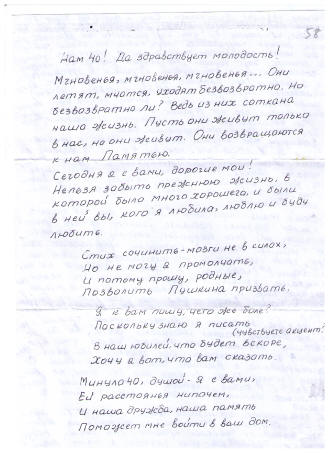 58
Нам 40! Да здравствует молодость!
Мгновенья, мгновенья, мгновенья... Они
летят, мчатся, уходят безвозвратно. Но
безвозвратно ли? Ведь из них соткана
наша жизнь. Пусть они живут только
в нас, но они живут. Они возвращаются
к нам Памятью.
Сегодня я с вами, дорогие мои!
Нельзя забыть прежнюю жизнь, в
которой было много хорошего, и были
в ней вы, кого я любила, люблю и буду
любить.
Стих сочинить - мозги не в силах,
Но не могу я промолчать,
И потому прошу, родные,
Позволить Пушкина призвать.
Я к вам пишу, чего же боле?
Поскольку знаю я писать
(чувствуете акцент?
В наш юбилей, что будет вскоре,
Хочу я вот, что вам сказать.
Минуло 40, душой - я с вами,
Ей расстоянья нипочем,
И наша дружба, наша память
Поможет мне войти в ваш дом.